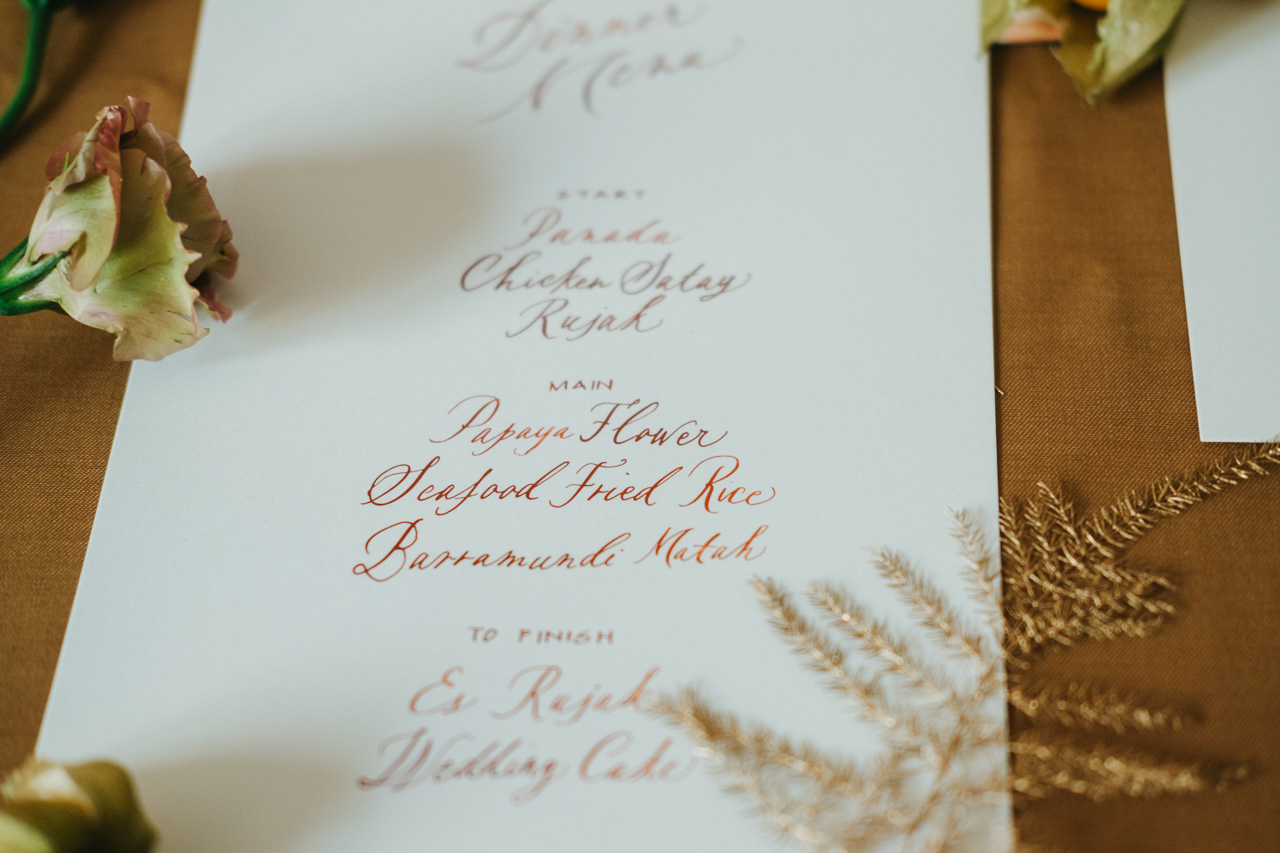 Dinner
Menu
START
Panada
Chicken Satay
Rujak
MAIN
Papaya Flower
Seafood Fried Rice
Barramundi Matah
TO FINISH
Es Rujak
Wedding Cake